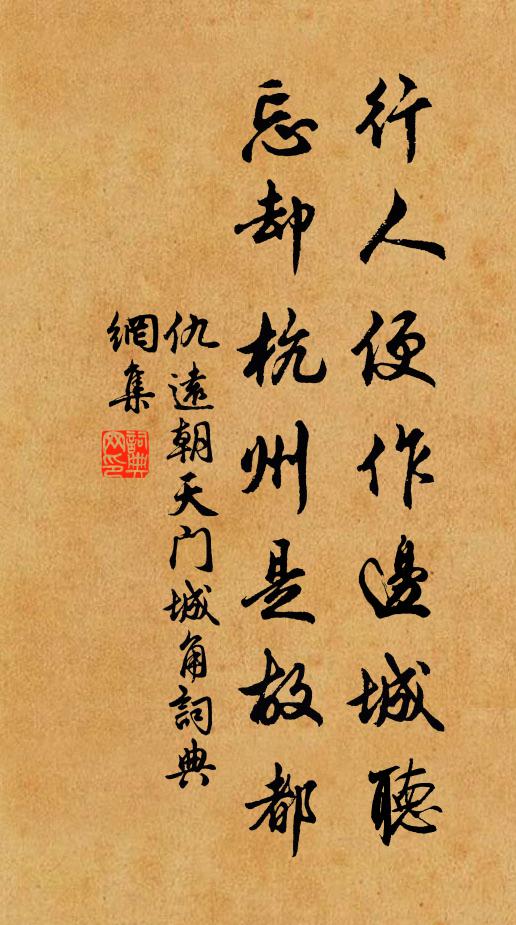 行人便作邊城聽
忘却杭州是故都
仇遠朝天门城角詞典
網集
詞典网印